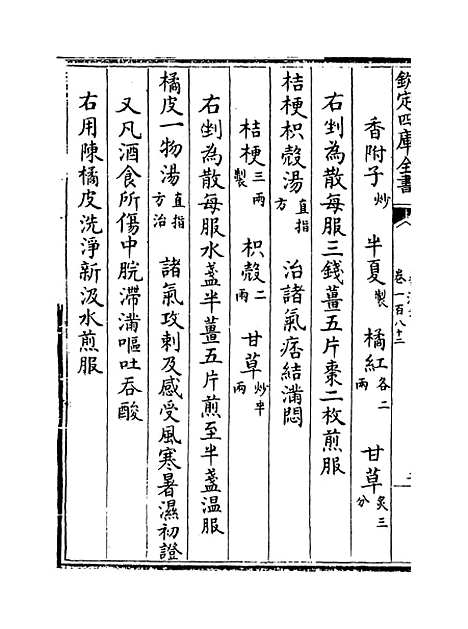 欽定四庫全書
卷一百八十二
香附子炒 半夏製 橘紅各二兩 甘草炙三分
右剉為散每服三錢薑五片棗二枚煎服
桔梗枳殼湯直指方 治諸氣痞結滿悶
桔梗三兩製 枳殼二兩 甘草炒半兩
右剉為散每服水盞半薑五片煎至半盞温服
橘皮一物湯直指方治 諸氣攻刺及感受風寒暑濕初證
又凡酒食所傷中脘滯滿嘔吐吞酸
右用陳橘皮洗淨新汲水煎服